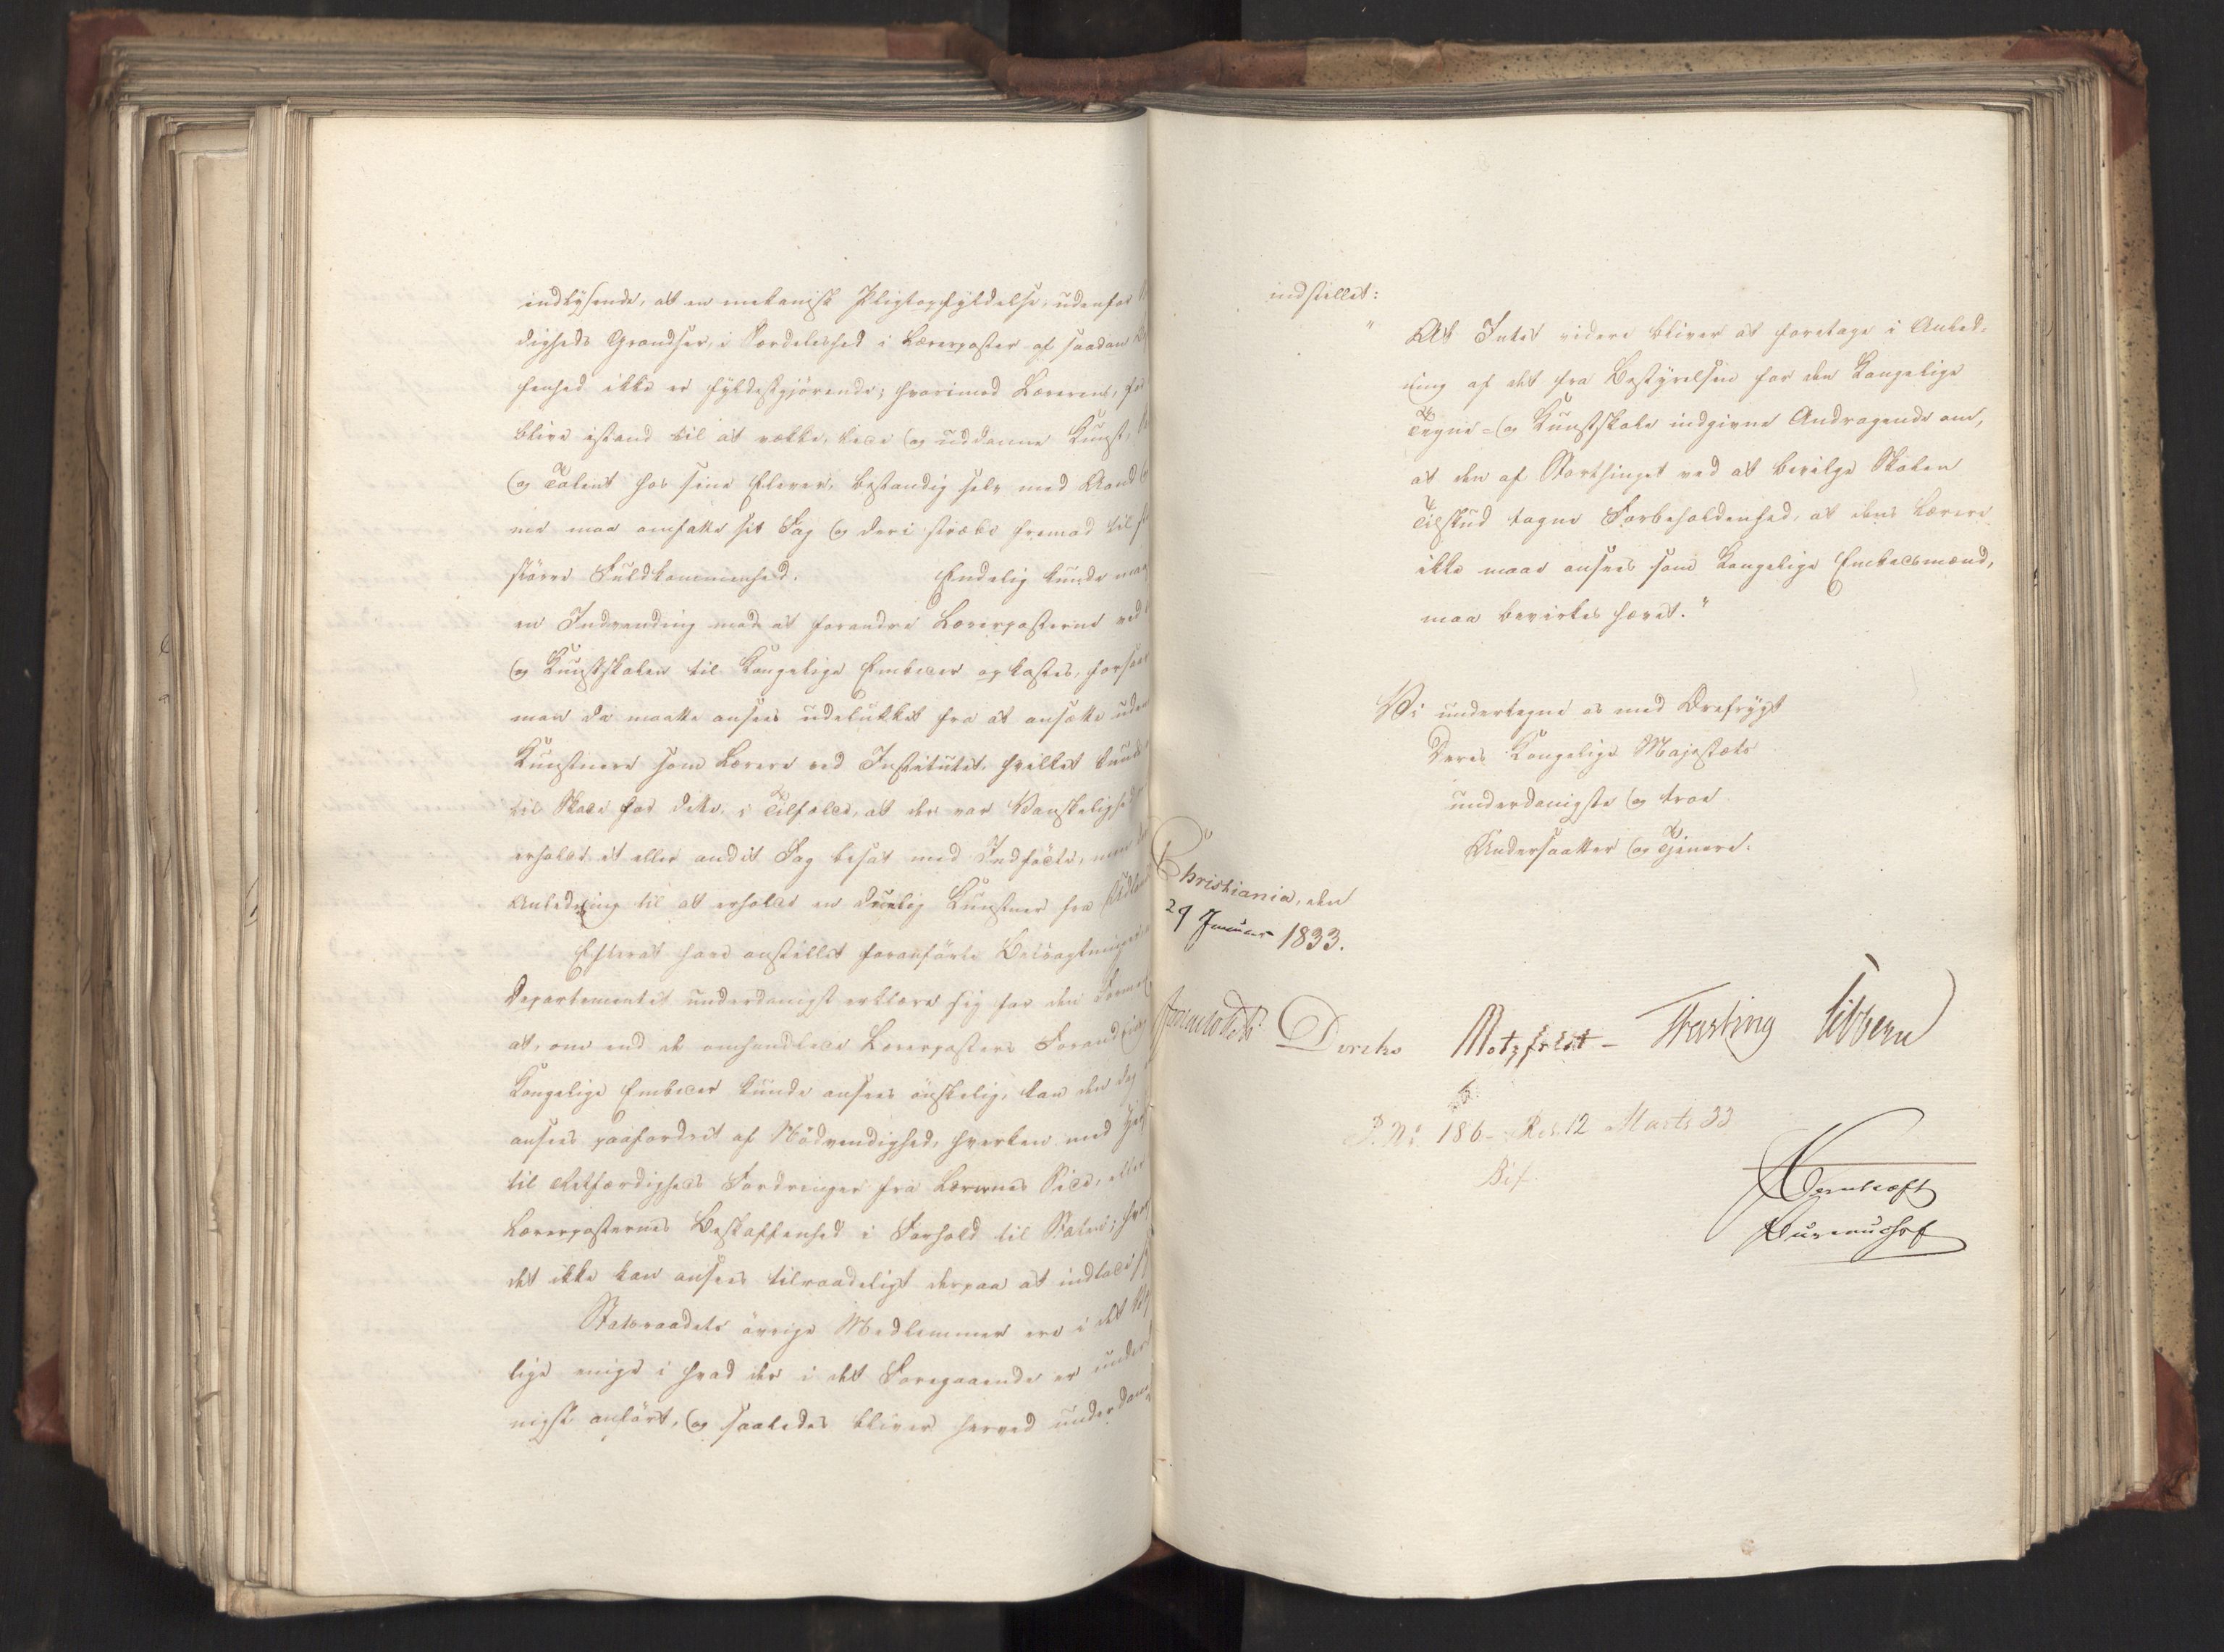 indlysende, at en mekanisk Pligtopfyldelse, udenfor
digheds Grændser, i Særdeleshed i Lærerposter af saadan
fenhed ikke er fyldestgjørende; hvorimod Læreren, for
blive istand til at vække, lede og uddanne Kunst,
og Talent hos sine Elever, bestandig selv med Aand
me maa omfatte sit Fag og deri stræbe fremad til
større Fuldkommenhed. Endelig kunde maa
en Indvending mod at forandre Lærerposterne ved
og Kunstskolen til Kongelige Embeder opkastes, forsaa
man da maatte ansees udelukket fra at ansætte uden
Kunstnere som Lærere ved Institutet, hvilket kunde
til Skade for dette, i Tilfælde, at der var Vanskelighed
erholde et eller andet Fag besat med Indfødte, men
Anledning til at erholde en duelig Kunstner fra Udlan
Efterat have anstillet foranførte Betragtninger
Departementet underdanigst erklære sig for den Formen
at, om end de omhandlede Lærerposters Forandring
Kongelige Embeder kunde ansees ønskelig, kan den dog
ansees paafordret af Nødvendighed, hverken med Hen
til Retfærdigheds Fordringer fra Lærernes Side, eller
Lærerposternes Beskaffenhed i Forhold til Staten; hvor
det ikke kan ansees tilraadeligt derpaa at indlade
Statsraadets øvrige Medlemmer ere i det
lige enige i hvad der i det Foregaaende er under
nigst anført, og saaledes bliver herved underdan
indstillet:
"At Intet videre bliver at foretage i Anled-
ning af det fra Bestyrelsen for den Kongelige
Tegne- og Kunstskole indgivne Andragende om,
at den af Storthinget ved at bevilge Skolen
Tilskud tagne Forbeholdenhed, at dens Lærere
ikke maae ansees som Kongelige Embedsmænd,
maa bevirkes hævet."
Vi undertegne os med Ærefrygt
Deres Kongelige Majestæts
underdanigste og troe
Undersaatter og Tjenere.
Christiania, den
29 Januar 1833.
Diriks Motzfeldt Fasting Vibbern
P. N: 186 - Res. 12 Marts 33
Bif.